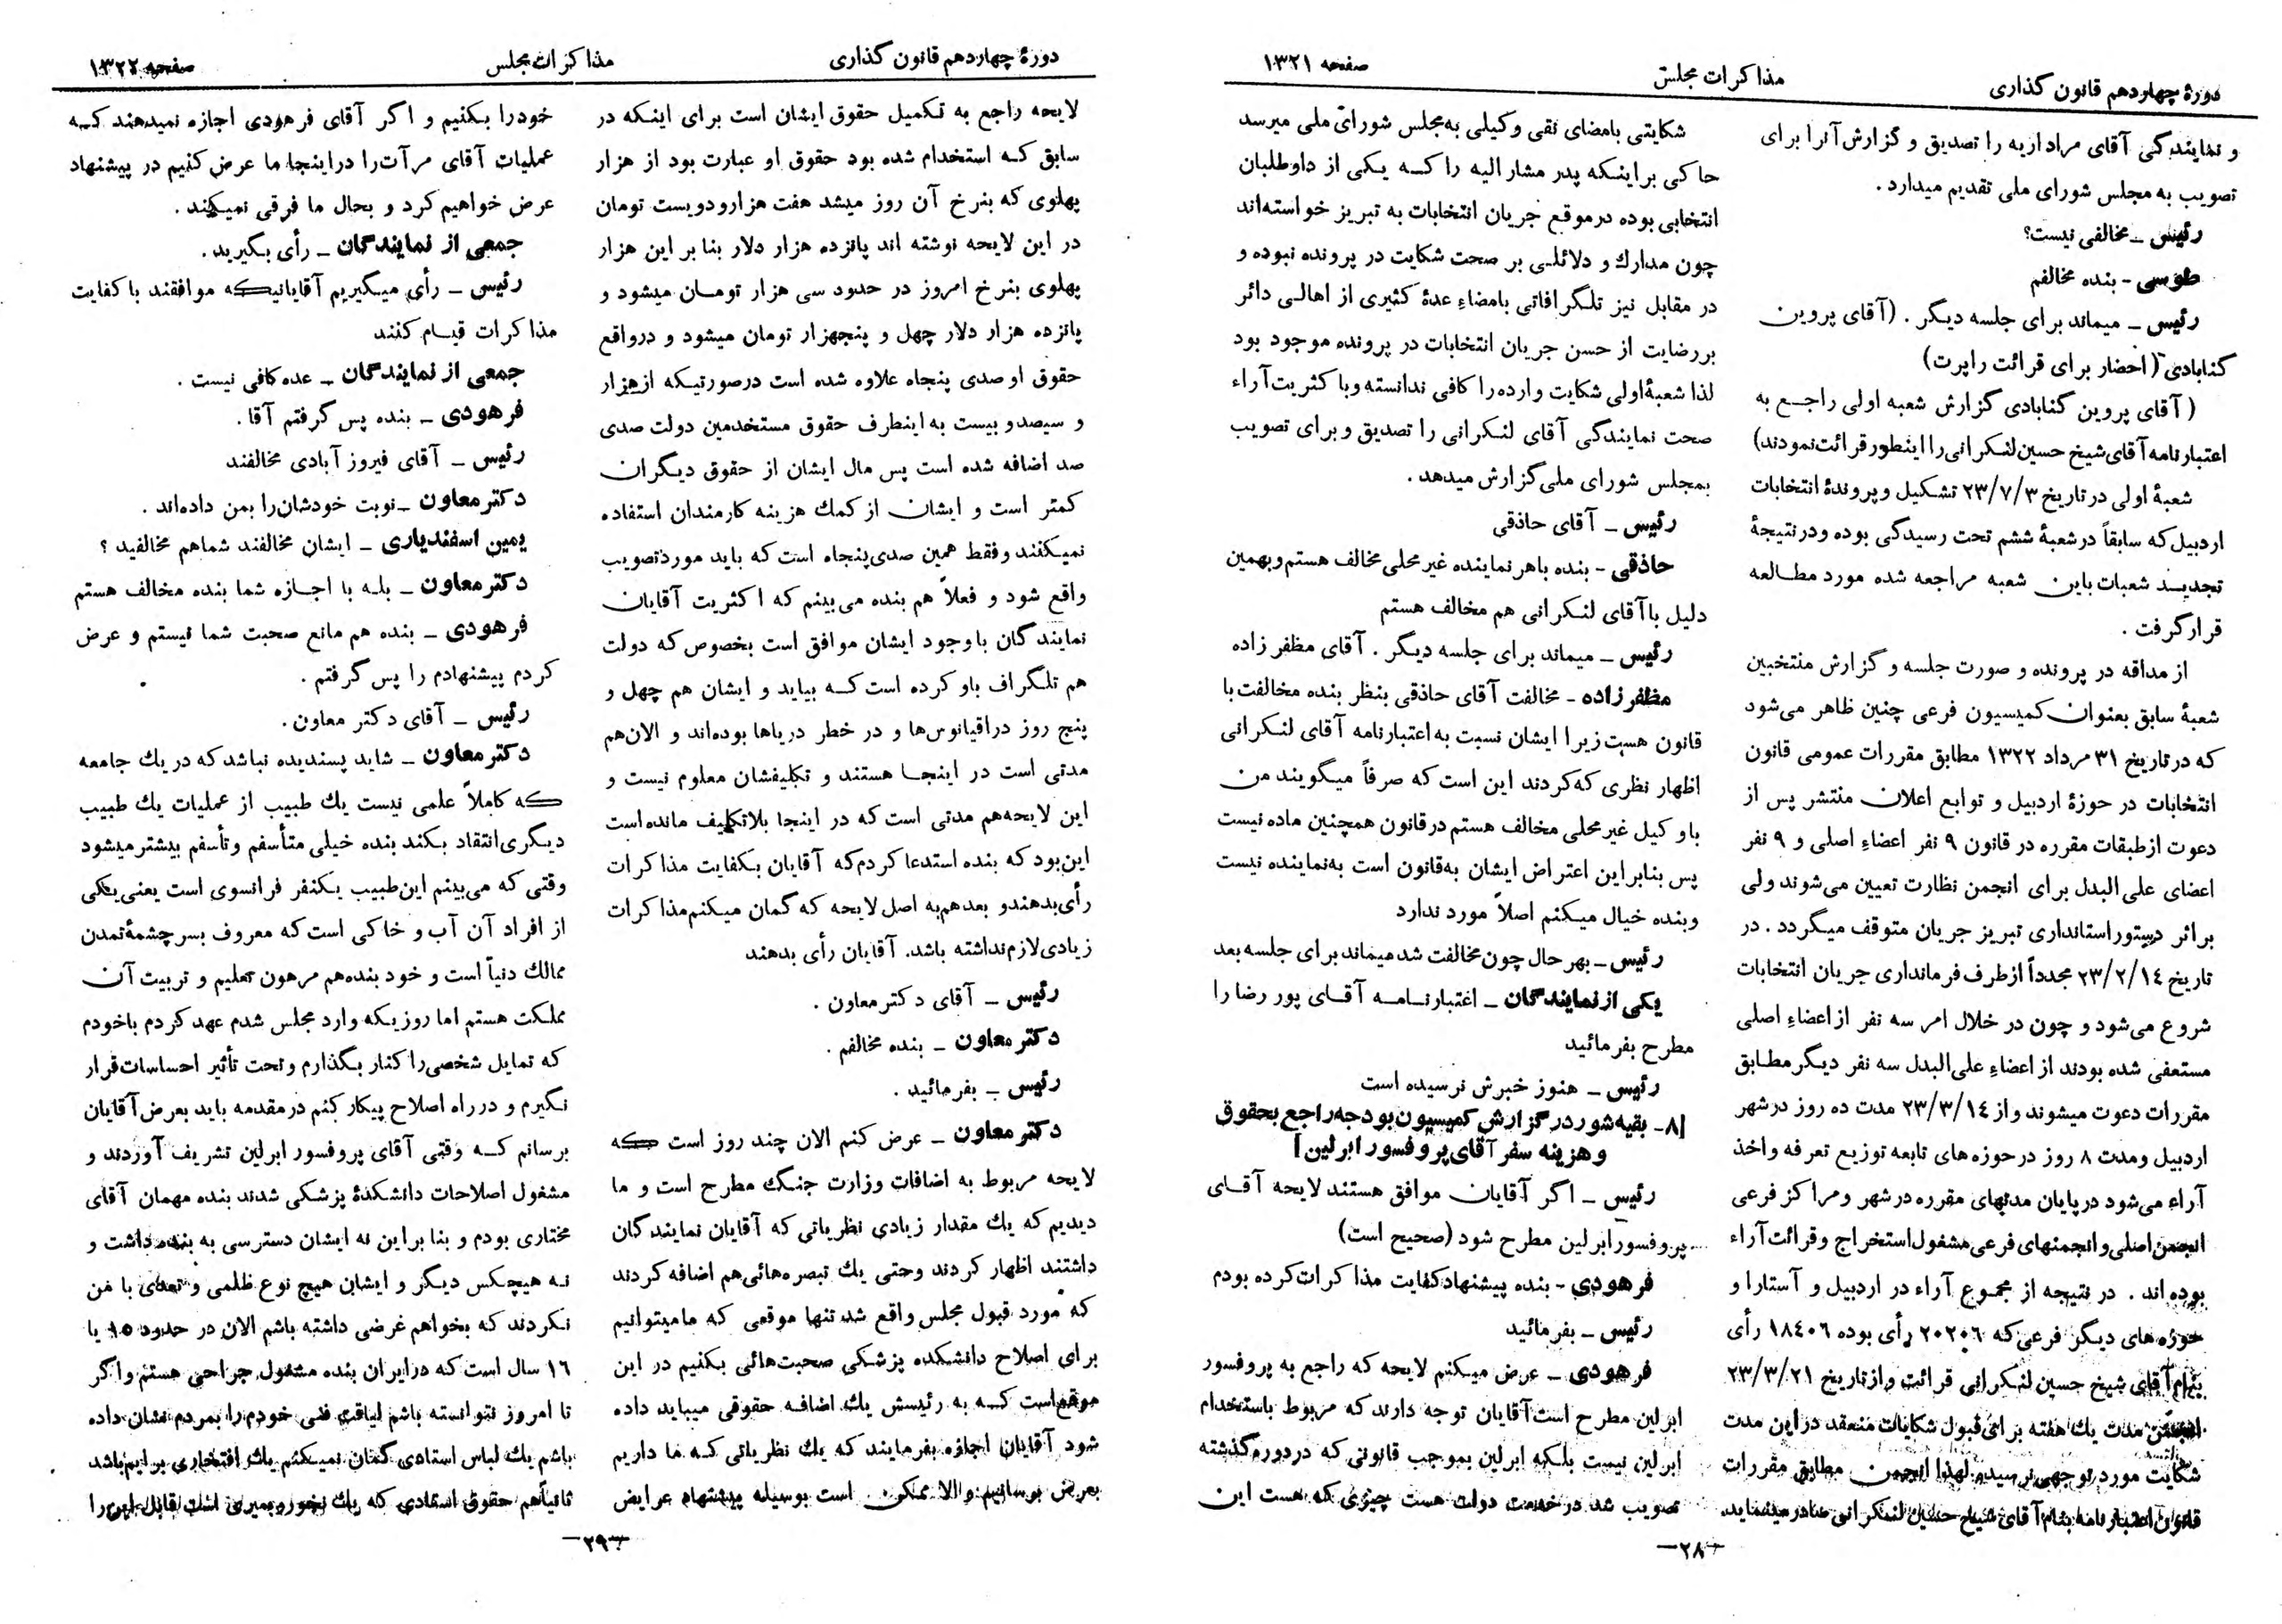 دورهٔ چهاردهم قانون گذاری
مذاکرات مجلس
صفحه ۱۳۲۱
و نمایندگی آقای مراد اریه را تصدیق و گزارش آنرا برای
تصویب به مجلس شورای ملی تقدیم میدارد .
رئیس ـ مخالفی نیست؟
طوسی - بنده مخالفم
رئیس ـ میماند برای جلسه دیگر . (آقای پروین
گنابادی (احضار برای قرائت راپرت)
( آقای پروین گنابادی گزارش شعبه اولی راجع به
اعتبارنامه آقای شیخ حسین لنکرانی را اینطور قرائت نمودند)
شعبهٔ اولی در تاریخ ۲۳/۷/۳ تشکیل و پروندهٔ انتخابات
اردبیل که سابقاً در شعبهٔ ششم تحت رسیدگی بوده و در نتیجهٔ
تجدید شعبات باین شعبه مراجعه شده مورد مطالعه
قرار گرفت .
از مداقه در پرونده و صورت جلسه و گزارش منتخبین
شعبهٔ سابق بعنوان کمیسیون فرعی چنین ظاهر می‌شود
که در تاریخ ۳۱ مرداد ۱۳۲۲ مطابق مقررات عمومی قانون
انتخابات در حوزهٔ اردبیل و توابع اعلان منتشر پس از
دعوت از طبقات مقرره در قانون ۹ نفر اعضاء اصلی و ۹ نفر
اعضای علی البدل برای انجمن نظارت تعیین می‌شوند ولی
بر اثر دستور استانداری تبریز جریان متوقف میگردد . در
تاریخ ۲۳/۲/۱۴ مجدداً از طرف فرمانداری جریان انتخابات
شروع می‌شود و چون در خلال امر سه نفر از اعضاء اصلی
مستعفی شده بودند از اعضاء علی البدل سه نفر دیگر مطابق
مقررات دعوت میشوند و از ۲۳/۳/۱۴ مدت ده روز در شهر
اردبیل و مدت ۸ روز در حوزه‌های تابعه توزیع تعرفه و اخذ
آراء می‌شود در پایان مدتهای مقرره در شهر و مراکز فرعی
انجمن اصلی و انجمنهای فرعی مشغول استخراج و قرائت آراء
بوده اند . در نتیجه از مجموع آراء در اردبیل و آستارا و
حوزه های دیگر فرعی که ۲۰۲۰۶ رأی بوده ۱۸۴۰۶ رأی
بنام آقای شیخ حسین لنکرانی قرائت و از تاریخ ۲۳/۳/۲۱
مدت یك هفته برای قبول شکایات منعقد در این مدت
شکایت مورد توجهی نرسیده لهذا انجمن مطابق مقررات
قانون اعتبارنامه بنام آقای شیخ حسین لنکرانی صادر مینماید.
شکایتی بامضای تقی وکیلی به مجلس شورای ملی میرسد
حاکی بر اینکه پدر مشار الیه را که یکی از داوطلبان
انتخابی بوده در موقع جریان انتخابات به تبریز خواسته‌اند
چون مدارك و دلائلی بر صحت شکایت در پرونده نبوده و
در مقابل نیز تلگرافاتی بامضاء عدهٔ کثیری از اهالی دائر
بر رضایت از حسن جریان انتخابات در پرونده موجود بود
لذا شعبهٔ اولی شکایت وارده را کافی ندانسته و با کثریت آراء
صحت نمایندگی آقای لنکرانی را تصدیق و برای تصویب
بمجلس شورای ملی گزارش میدهد .
رئیس ـ آقای حاذقی
حاذقی - بنده باهر نماینده غیر محلی مخالف هستم و بهمین
دلیل با آقای لنکرانی هم مخالف هستم
رئیس ـ میماند برای جلسه دیگر . آقای مظفر زاده
مظفرزاده - مخالفت آقای حاذقی بنظر بنده مخالفت با
قانون هست زیرا ایشان نسبت به اعتبارنامه آقای لنکرانی
اظهار نظری که کردند این است که صرفاً میگویند من
با وکیل غیر محلی مخالف هستم در قانون همچنین ماده نیست
پس بنابراین اعتراض ایشان به قانون است به نماینده نیست
و بنده خیال میکنم اصلاً مورد ندارد
رئیس ـ بهر حال چون مخالفت شد میماند برای جلسه بعد
یکی از نمایندگان ـ اعتبارنامه آقای پور رضا را
مطرح بفرمائید
رئیس ـ هنوز خبرش نرسیده است
[۸ـ بقیه شور در گزارش کمیسیون بودجه راجع بحقوق
و هزینه سفر آقای پروفسور ابرلین]
رئیس ـ اگر آقایان موافق هستند لایحه آقای
پروفسور ابرلین مطرح شود (صحیح است)
فرهودی - بنده پیشنهاد کفایت مذاکرات کرده بودم
رئیس ـ بفرمائید
فرهودی ـ عرض میکنم لایحه که راجع به پروفسور
ابرلین مطرح است آقایان توجه دارند که مربوط باستخدام
ابرلین نیست بلکه ابرلین بموجب قانونی که در دوره گذشته
تصویب شد در خدمت دولت هست چیزی که هست این
ـ ۲۸ ـ
دورهٔ چهاردهم قانون گذاری
مذاکرات مجلس
صفحه ۱۳۲۲
لایحه راجع به تکمیل حقوق ایشان است برای اینکه در
سابق که استخدام شده بود حقوق او عبارت بود از هزار
پهلوی که بنرخ آن روز میشد هفت هزار و دویست تومان
در این لایحه نوشته اند پانزده هزار دلار بنا بر این هزار
پهلوی بنرخ امروز در حدود سی هزار تومان میشود و
پانزده هزار دلار چهل و پنجهزار تومان میشود و در واقع
حقوق او صدی پنجاه علاوه شده است در صورتیکه از هزار
و سیصد و بیست به اینطرف حقوق مستخدمین دولت صدی
صد اضافه شده است پس مال ایشان از حقوق دیگران
کمتر است و ایشان از کمك هزینه کارمندان استفاده
نمیکنند و فقط همین صدی پنجاه است که باید مورد تصویب
واقع شود و فعلاً هم بنده می‌بینم که اکثریت آقایان
نمایندگان با وجود ایشان موافق است بخصوص که دولت
هم تلگراف باو کرده است که بیاید و ایشان هم چهل و
پنج روز در اقیانوس‌ها و در خطر دریاها بوده‌اند و الان هم
مدتی است در اینجا هستند و تکلیفشان معلوم نیست و
این لایحه هم مدتی است که در اینجا بلاتکلیف مانده است
این بود که بنده استدعا کردم که آقایان بکفایت مذاکرات
رأی بدهند و بعد هم به اصل لایحه که گمان میکنم مذاکرات
زیادی لازم نداشته باشد. آقایان رأی بدهند
رئیس ـ آقای دکتر معاون .
دکتر معاون ـ بنده مخالفم .
رئیس ـ بفرمائید .
دکتر معاون ـ عرض کنم الان چند روز است که
لایحه مربوط به اضافات وزارت جنگ مطرح است و ما
دیدیم که یك مقدار زیادی نظریاتی که آقایان نمایندگان
داشتند اظهار کردند و حتی یك تبصره هائی هم اضافه کردند
که مورد قبول مجلس واقع شد تنها موقعی که ما میتوانیم
برای اصلاح دانشکده پزشکی صحبت هائی بکنیم در این
موقع است که به رئیسش یك اضافه حقوقی میباید داده
شود آقایان اجازه بفرمایند که یك نظریاتی که ما داریم
بعرض برسانیم والا ممکن است بوسیله پیشنهاد عرایض
خود را بکنیم و اگر آقای فرهودی اجازه نمیدهند که
عملیات آقای مرآت را در اینجا ما عرض کنیم در پیشنهاد
عرض خواهیم کرد و بحال ما فرقی نمیکند .
جمعی از نمایندگان ـ رأی بگیرید .
رئیس ـ رأی میگیریم آقایانیکه موافقند با کفایت
مذاکرات قیام کنند
جمعی از نمایندگان ـ عده کافی نیست .
فرهودی ـ بنده پس گرفتم آقا .
رئیس ـ آقای فیروز آبادی مخالفند
دکتر معاون ـ نوبت خودشان را بمن داده‌اند .
یمین اسفندیاری ـ ایشان مخالفند شما هم مخالفید ؟
دکتر معاون ـ بله با اجازه شما بنده مخالف هستم
فرهودی ـ بنده هم مانع صحبت شما نیستم و عرض
کردم پیشنهادم را پس گرفتم .
رئیس ـ آقای دکتر معاون .
دکتر معاون ـ شاید پسندیده نباشد که در یك جامعه
که کاملاً علمی نیست یك طبیب از عملیات یك طبیب
دیگری انتقاد بکند بنده خیلی متأسفم و تأسفم بیشتر میشود
وقتی که می‌بینم این طبیب یکنفر فرانسوی است یعنی یکی
از افراد آن آب و خاکی است که معروف بسر چشمهٔ تمدن
ممالك دنیا است و خود بنده هم مرهون تعلیم و تربیت آن
مملکت هستم اما روزیکه وارد مجلس شدم عهد کردم باخودم
که تمایل شخصی را کنار بگذارم و تحت تأثیر احساسات قرار
نگیرم و در راه اصلاح پیکار کنم در مقدمه باید بعرض آقایان
برسانم که وقتی آقای پروفسور ابرلین تشریف آوردند و
مشغول اصلاحات دانشکدهٔ پزشکی شدند بنده مهمان آقای
مختاری بودم و بنا بر این نه ایشان دسترسی به بنده داشت و
نه هیچکس دیگر و ایشان هیچ نوع ظلمی و تعدی با من
نکردند که بخواهم غرضی داشته باشم الان در حدود ۱۵ یا
۱۶ سال است که در ایران بنده مشغول جراحی هستم و اگر
تا امروز نتوانسته باشم لیاقت فنی خودم را بمردم نشان داده
باشم یك لباس استادی گمان نمیکنم یك افتخاری برایم باشد
ثانیاً هم حقوق استادی که یك بخور و نمیری است قابل این را
ـ ۲۹ ـ